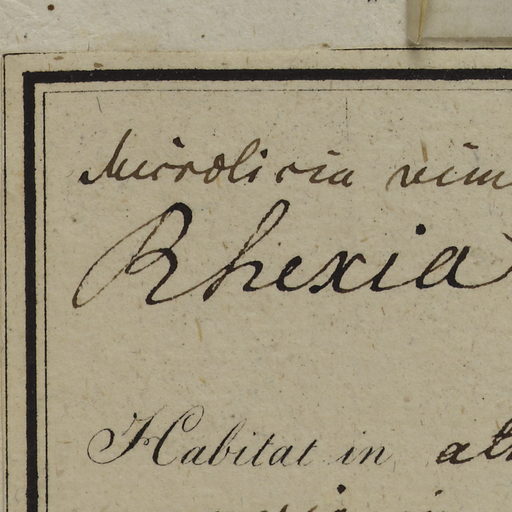 Microlicia vim
Rhexia
Habitat in alt